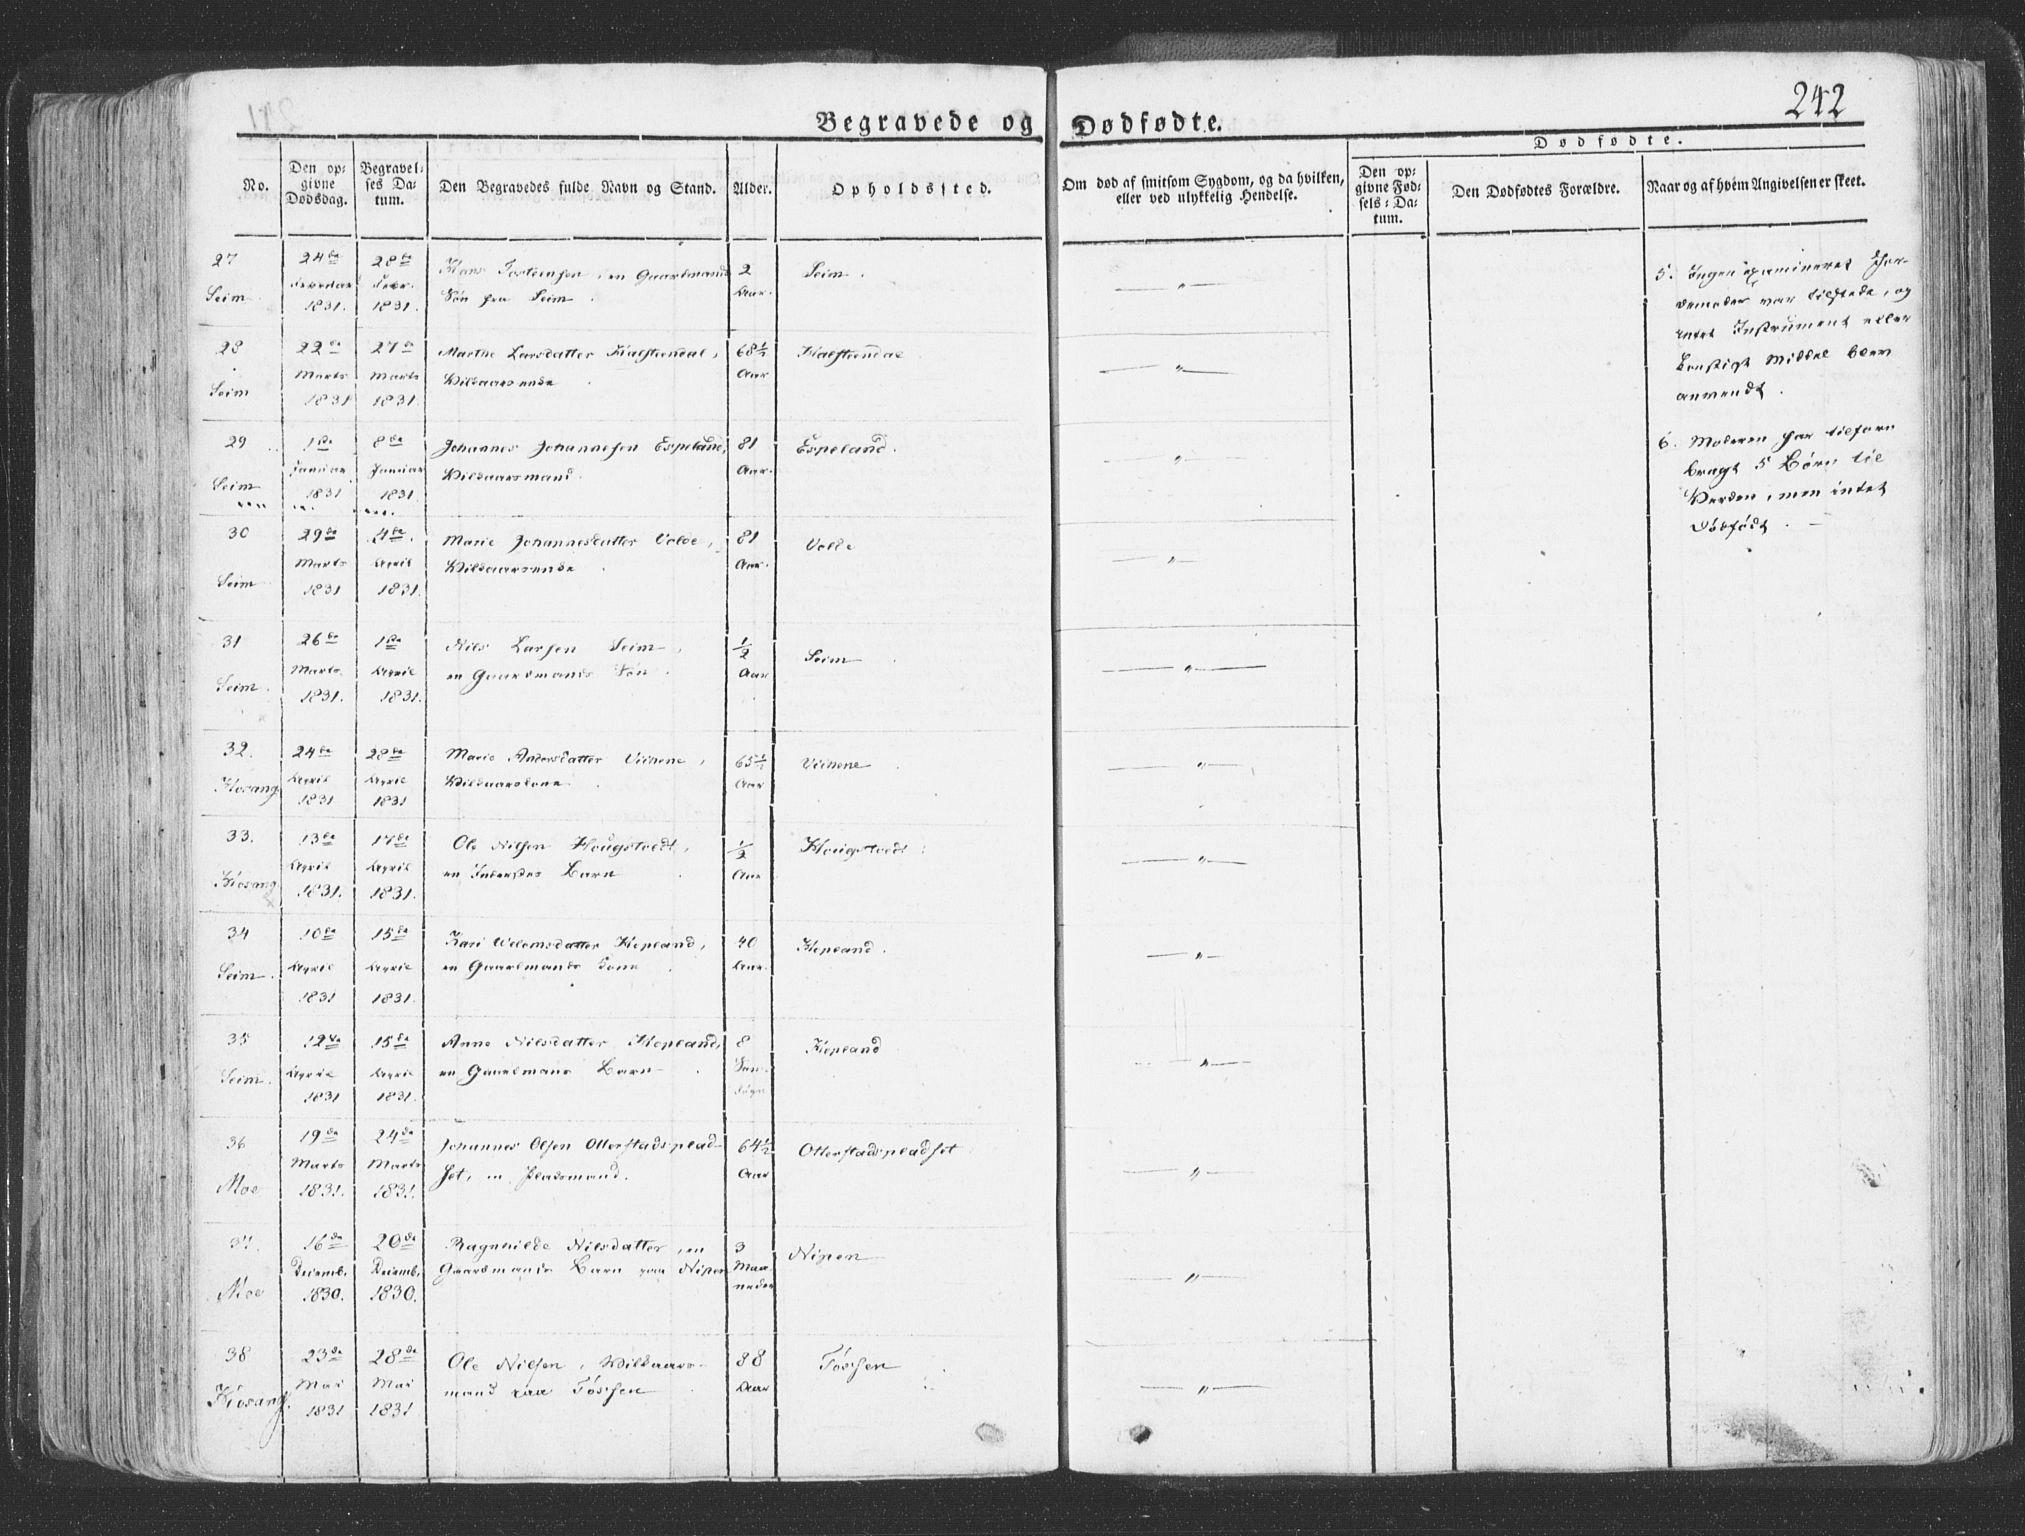 242
Begravede og Dødfødte.
Dødfødte.
No.
Den op-
givne
Dødsdag.
Begravel-
ses Da-
tum.
Den Begravedes fulde Navn og Stand.
Alder.
Opholdssted.
Om død af smitsom Sygdom, og da hvilken,
eller ved ulykkelig Hendelse.
Den op-
givne Fød-
sels-Da-
tum.
Den Dødfødtes Forældre.
Naar og af hvem Angivelsen er skeet.
27
Seim
24de
Februar
1831.
28de
Febr.
1831.
Hans Torsteinsen, en Gaardmands
Søn fra Seim.
2
Aar.
Seim.
— " —
28
Seim
22de
Marts
1831
27de
Marts
1831.
Marthe Larsdatter Kalsteendal,
Wilkaarsenke.
68½
Aar
Kalsteendal.
— " —
29
Seim
1ste
Januar
1831
8de
Januar
1831.
Johannes Johannesen Espeland,
Wilkaarsmand.
81
Aar.
Espeland.
— " —
30
Seim
29de
Marts
1831
4de
April
1831.
Marie Johannesdatter Volde,
Wilkaarsenke.
81
Aar.
Volde
— " —
31
Seim.
26de
Marts
1831.
1ste
April
1831.
Nils Larsen Seim,
en Gaardmands Søn.
½
Aar
Seim.
— " —
32.
Hosang
24de
April
1831
28de
April
1831
Marie Andersdatter
Wilkaarskone.
65½
Aar
— " —
33.
Hosang
13de
April
1831.
17de
April
1831.
Ole Nilsen Hougstvedt,
en Inderstes Barn.
½
Aar
Hougstvedt.
— " —
34
Seim.
10de
April
1831
15de
April
1831.
Kari Welomsdatter Hopland,
en Gaardmands Kone.
40
Aar.
Hopland.
— " —
35
Seim.
12te
April
1831
15de
April
1831.
Anne Nilsdatter Hopland,
en Gaardmans Barn.
8
Hopland
— " —
36
Moe
19de
Marts
1831.
24de
Marts
1831.
Johannes Olsen Otterstadsplad-
set, en Pladsmand.
64½
Aar
Otterstadspladset
— " —
37.
Moe
16de
Decemb.
1830.
20de
Decemb.
1830.
Ragnhilde Nilsdatter, en
Gaardmands Barn paa Nipen
3
Maa-
neder
Nipen
— " —
38
Hosang.
23de
Mai
1831
28de
Mai
1831
Ole Nilsen, Wilkaars-
mand paa Tøssen.
88
Aar
Tøssen
— " —
5. Ingen examineret Jor-
demoder var tilstede, og
intet Instrument eller
konstigt Middel blev
anvendt.
6. Moderen har tilforn
bragt 5 Børn til
Verden, men intet
Dødfødt. —